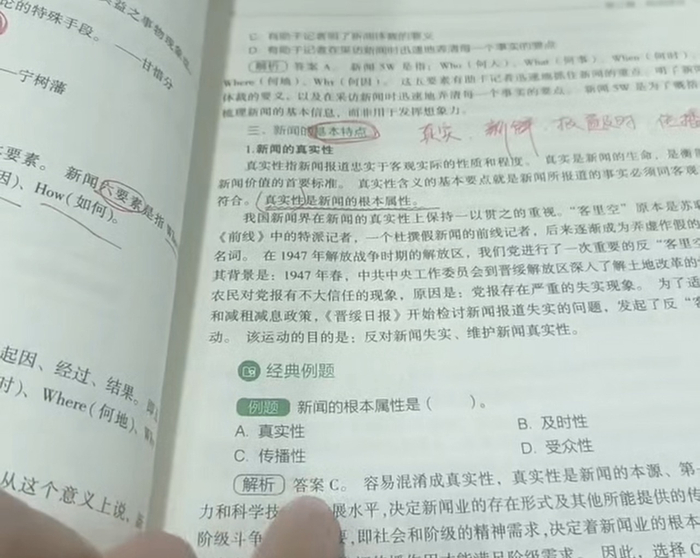 论的特殊手段。
——甘惜分
——宁树藩
要素。 新闻六要素是指
因)、How(如何)。
起因、经过、结果。
时)、Where(何地)、
从这个意义上说,
C. 有助于记者明了新闻体裁的要义
D. 有助于记者在采访新闻时迅速地弄清每一个事实的要点
解析 答案 A。 新闻 5W 是指:Who(何人)、What(何事)、When(何时)、
Where(何地)、Why(何因)。 这五要素有助于记者迅速地抓住新闻的重点、明了新闻
体裁的要义,以及在采访新闻时迅速地弄清每一个事实的要点。 新闻 5W 是为了
梳理新闻的基本信息,而非用于发挥想象力。
三、新闻的基本特点 真实、新鲜、报道及时、传播
1.新闻的真实性
真实性指新闻报道忠实于客观实际的性质和程度。 真实是新闻的生命,是衡
新闻价值的首要标准。 真实性含义的基本要点就是新闻所报道的事实必须同客观
符合。 真实性是新闻的根本属性。
我国新闻界在新闻的真实性上保持一以贯之的重视。“客里空”原本是苏
《前线》中的特派记者,一个杜撰假新闻的前线记者,后来逐渐成为弄虚作假的
名词。 在 1947 年解放战争时期的解放区,我们党进行了一次重要的反“客里
其背景是:1947 年春,中共中央工作委员会到晋绥解放区深入了解土地改革的
农民对党报有不大信任的现象,原因是:党报存在严重的失实现象。 为了适
和减租减息政策,《晋绥日报》开始检讨新闻报道失实的问题,发起了反“
动。 该运动的目的是:反对新闻失实、维护新闻真实性。
经典例题
例题 新闻的根本属性是( )。
A. 真实性 B. 及时性
C. 传播性 D. 受众性
解析 答案 C。 容易混淆成真实性,真实性是新闻的本源、第一
力和科学技 展水平,决定新闻业的存在形式及其他所能提供的传
阶级斗争 要,即社会和阶级的精神需求,决定着新闻业的根本
能满足阶级需求。 因此,选择 C